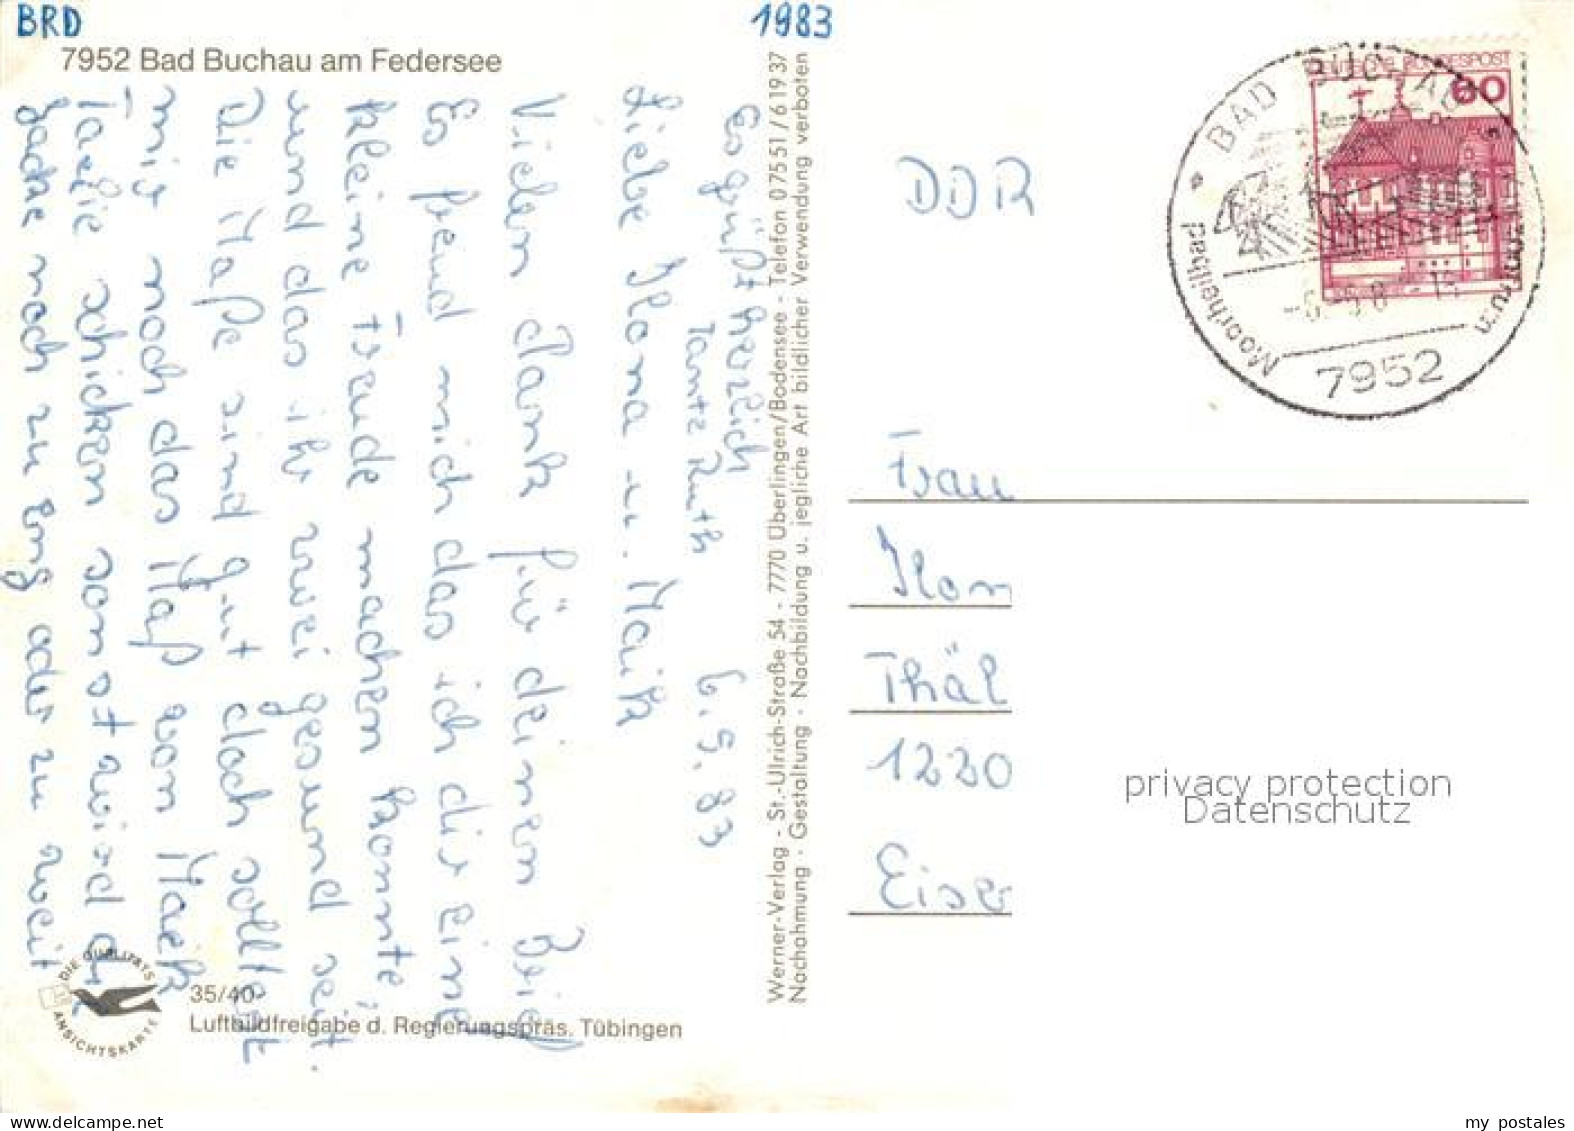 BRD
1983
7952 Bad Buchau am Federsee
6.9.83
Liebe Ilona u. Maik
Vielen Dank für deinen Brief
Es freud mich das ich dir eine
kleine Freude machen konnte;
und das ihr zwei gesund seit.
Die Maße sind gut doch solltest
mir noch das Maß von Maik
Taelie schicken sonst wird die
Jacke noch zu eng oder zu weit
Es grüßt herzlich
Tante Ruth
Werner-Verlag - St.-Ulrich-Straße 54 - 7770 Überlingen/Bodensee - Telefon 0 75 51 / 6 19 37
Nachahmung · Gestaltung · Nachbildung u. jegliche Art bildlicher Verwendung verboten
DIE QUALITÄTS
ANSICHTSKARTE
35/40
Luftbildfreigabe d. Regierungspräs. Tübingen
DDR
DEUTSCHE BUNDESPOST
60
BAD BUCHAU
Moorheilbad
7952
Frau
Ilon
Thäl
1220
Eise
privacy protection
Datenschutz
my postales